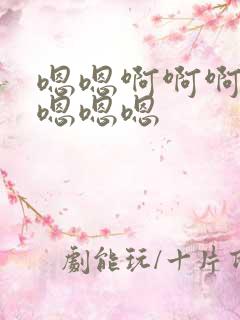 嗯嗯啊啊啊
嗯嗯嗯
劇能玩/十片